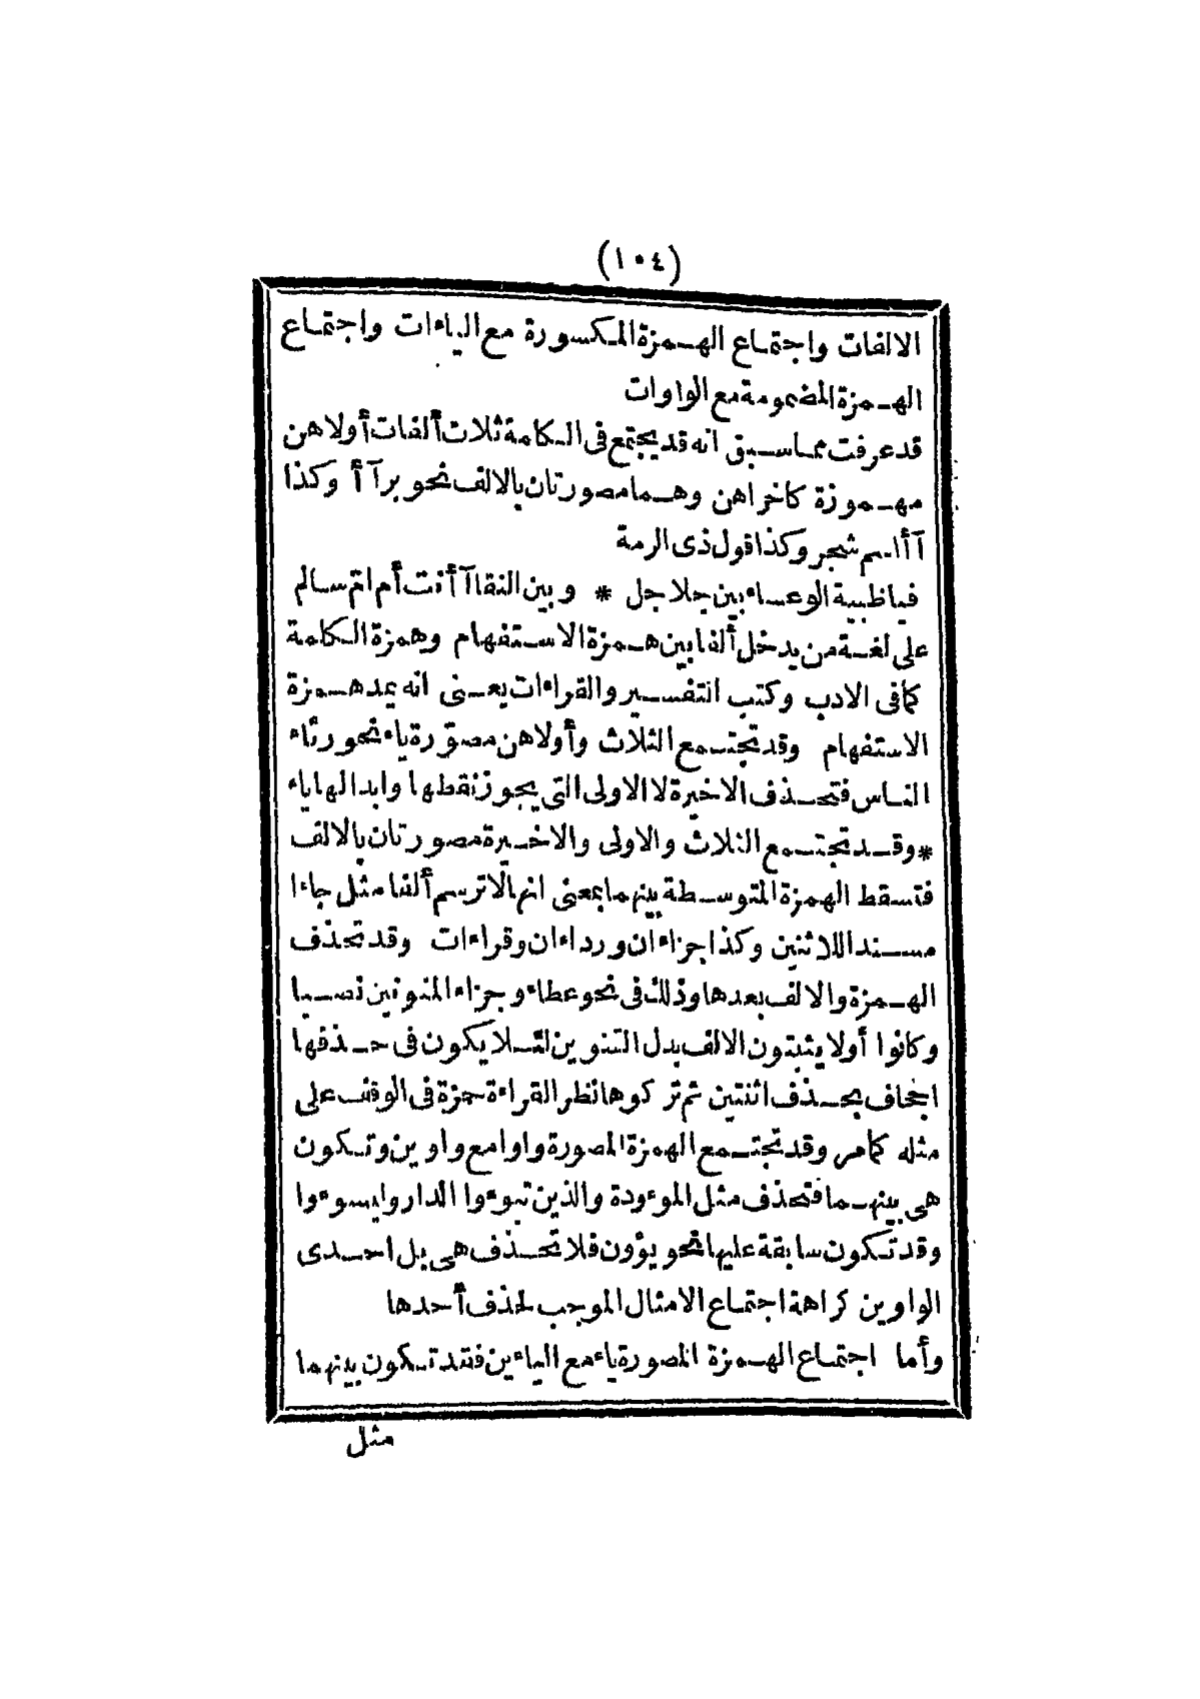 (١٠٤)
الالفات واجتماع الهمزة المكسورة مع الياءات واجتماع
الهمزة المضمومة مع الواوات
قد عرفت مما سبق انه قد يجتمع فى الكلمة ثلاث ألفات أولاهن
مهموزة كاخراهن وهما مصورتان بالالف نحو برآأ وكذا
آأاسم شجر وكذا قول ذى الرمة
فيا ظبية الوعساء بين جلاجل * وبين النقا آأنت أم ام سالم
على لغة من يدخل ألفا بين همزة الاستفهام وهمزة الكلمة
كما فى الادب وكتب التفسير والقراءات يعنى انه يمد همزة
الاستفهام وقد تجتمع الثلاث وأولاهن مصوّرة ياء نحو رئاء
الناس فتحذف الاخيرة لا الاولى التى يجوز نقطها وابدالها ياء
* وقد تجتمع الثلاث والاولى والاخيرة مصورتان بالالف
فتسقط الهمزة المتوسطة بينهما بمعنى انها لا ترسم ألفا مثل جاءا
مسندا للاثنين وكذا جزاءان ورداءان وقراءات وقد تحذف
الهمزة والالف بعدها وذلك فى نحو عطاء وجزاء المنونين نصبا
وكانوا أولا يثبتون الالف بدل التنوين لئلا يكون فى حذفها
اجحاف بحذف اثنتين ثم تركوها نظر القراءة حمزة فى الوقف على
مثله كما مر وقد تجتمع الهمزة المصورة واوا مع واوين وتكون
هى بينهما فتحذف مثل الموءودة والذين تبوءوا الدار وليسوءوا
وقد تكون سابقة عليها نحو يؤون فلا تحذف هى بل احدى
الواوين كراهة اجتماع الامثال الموجب لحذف أحدها
وأما اجتماع الهمزة المصورة ياء مع الياءين فقد تكون بينهما
مثل